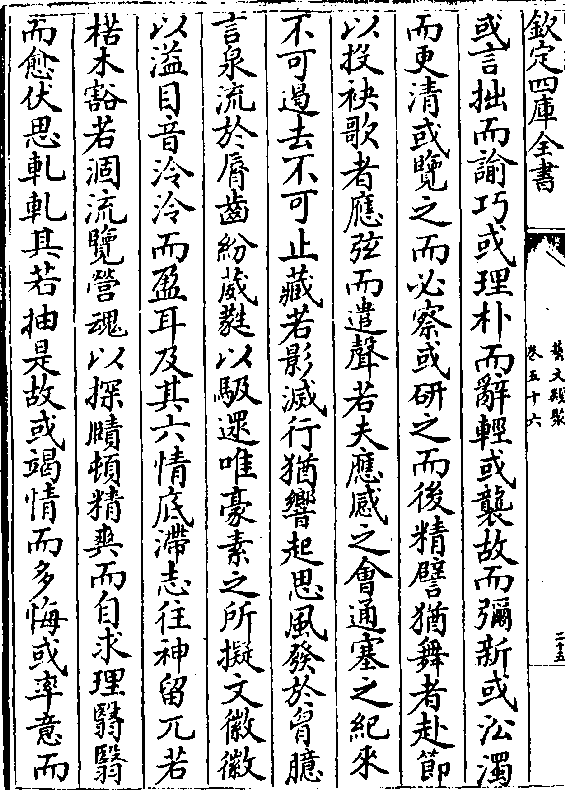 欽定四庫全書
藝文類聚
卷五十六
二十五
或言拙而諭巧或理朴而辭輕或襲故而彌新或㳂濁
而更清或覽之而必察或研之而後精譬猶舞者赴節
以投袂歌者應弦而遣聲若夫應感之會通塞之紀來
不可遏去不可止藏若影滅行猶響起思風發於胷臆
言泉流於脣齒紛葳蕤以馺遝唯豪素之所擬文徽徽
以溢目音泠泠而盈耳及其六情底滯志往神留兀若
楛木豁若涸流覽營魂以探賾頓精爽而自求理翳翳
而愈伏思軋軋其若抽是故或竭情而多悔或率意而